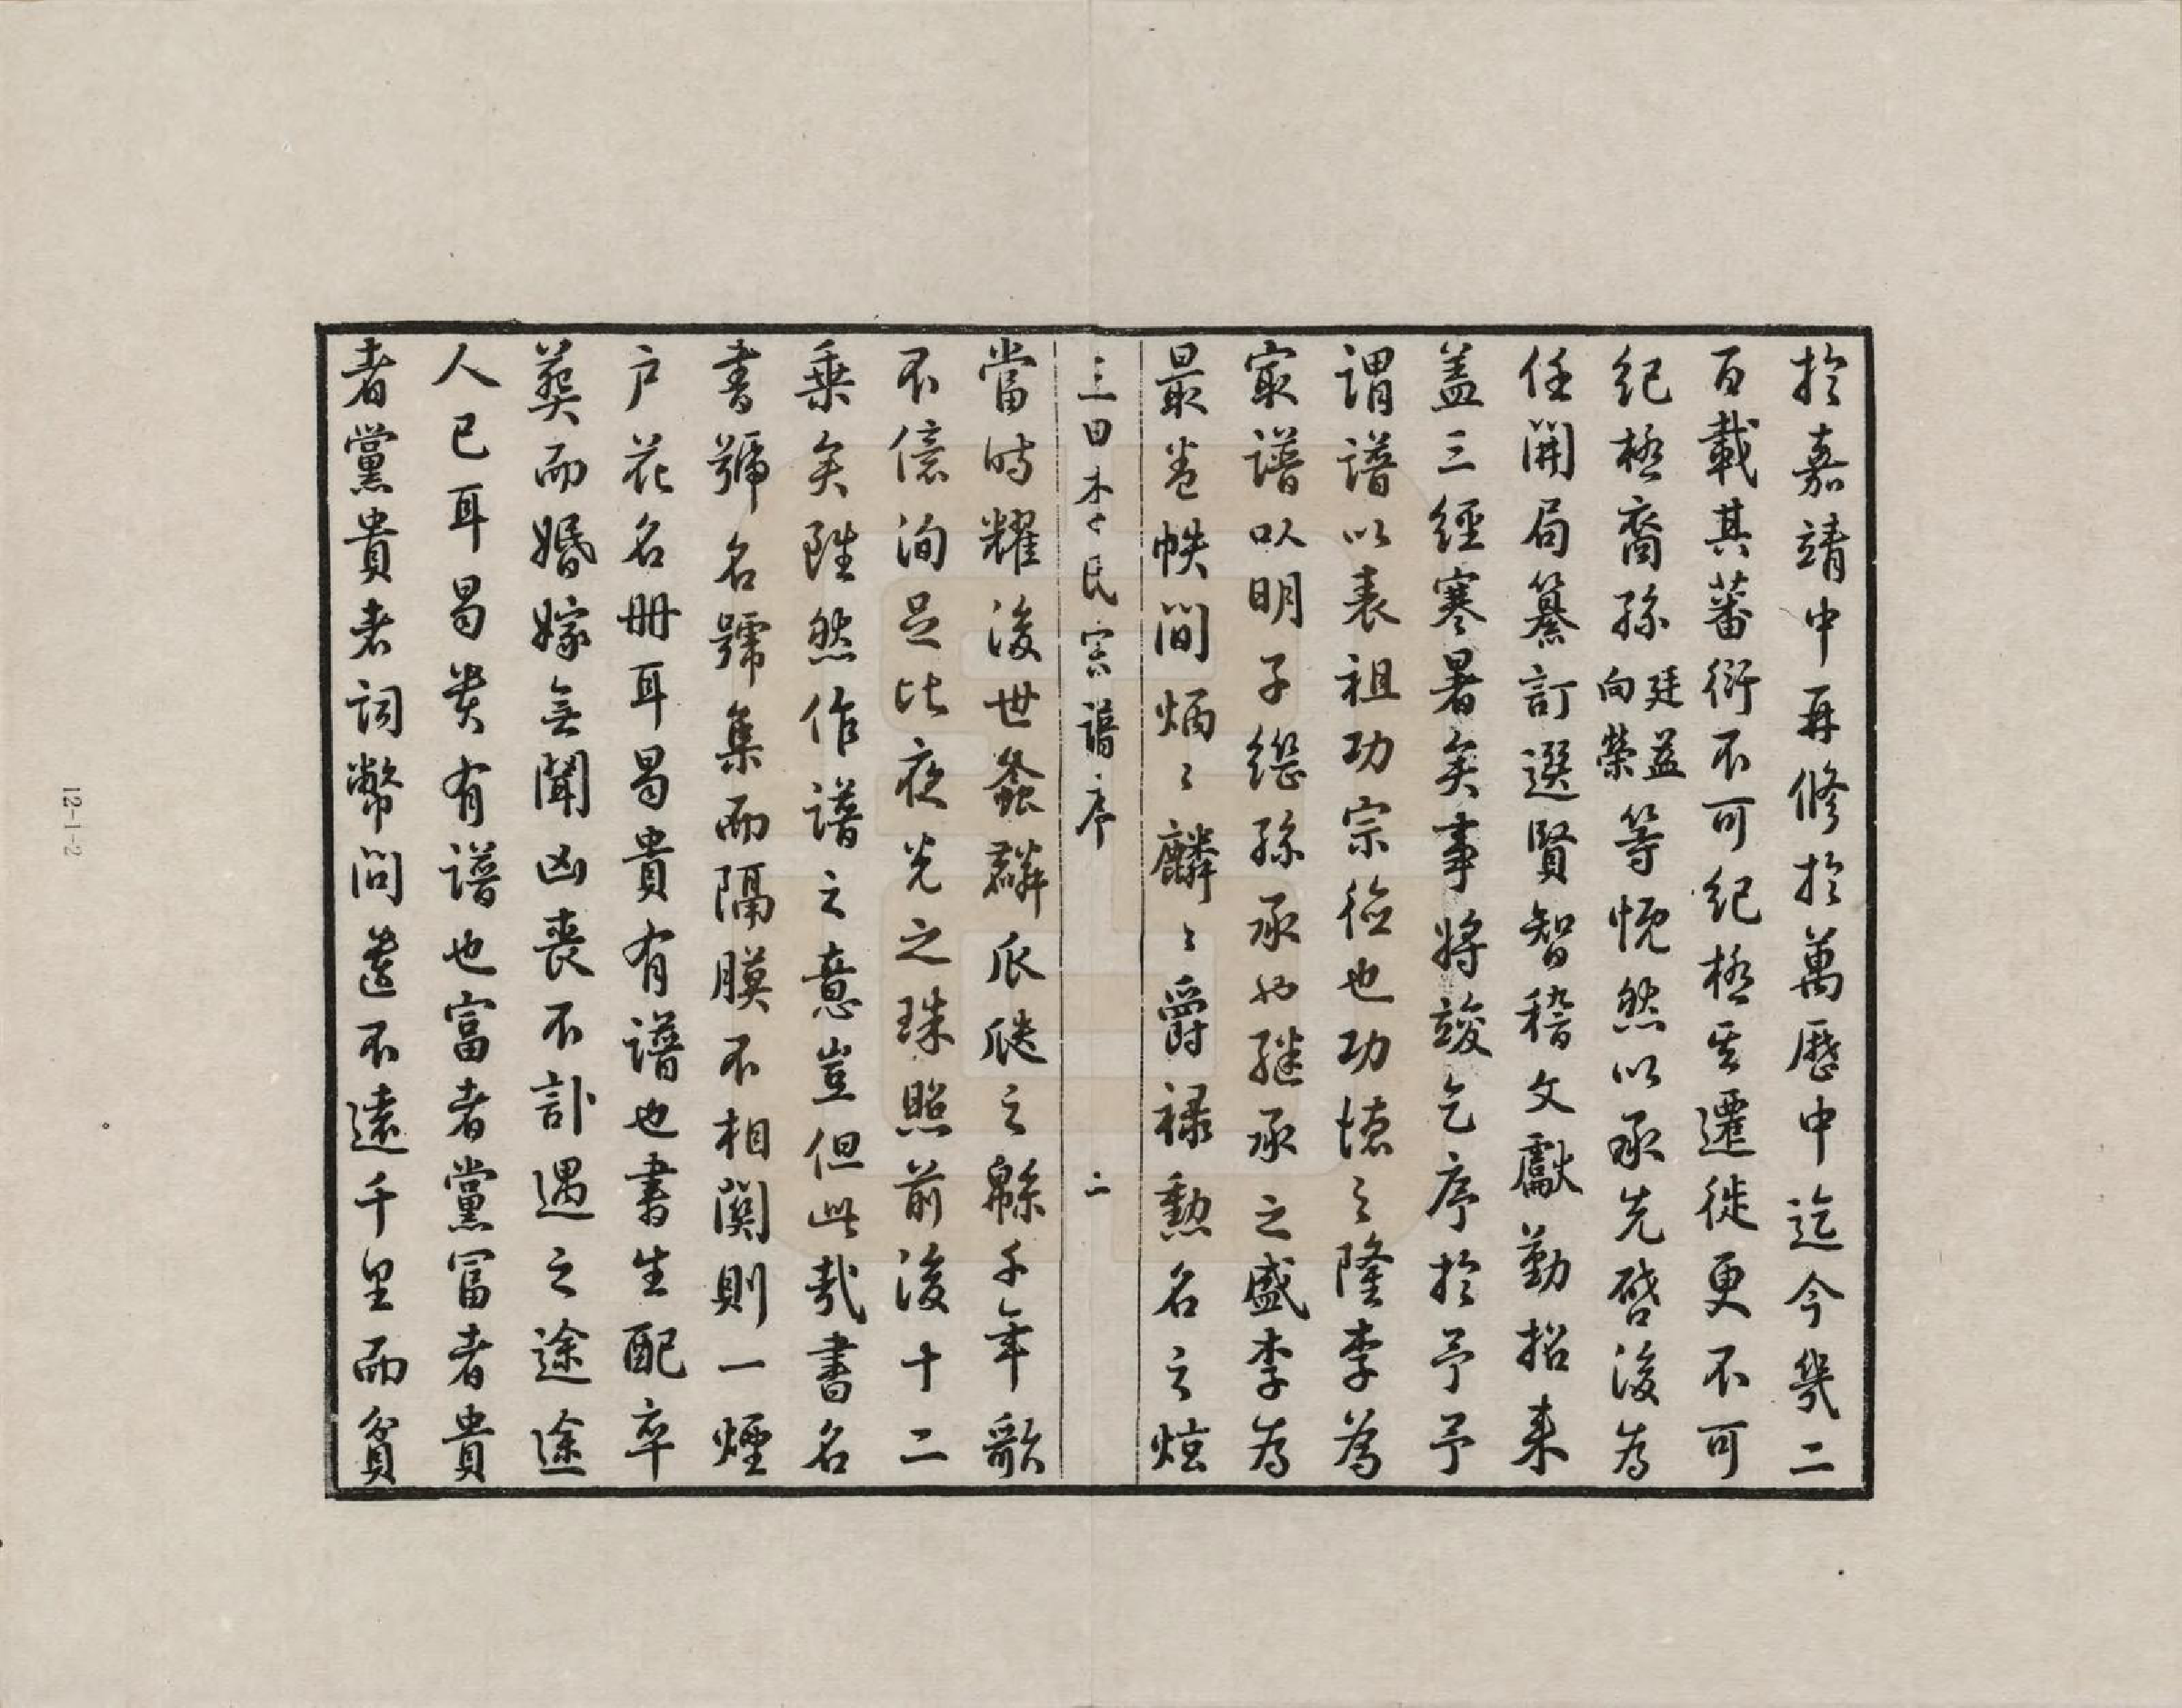 於嘉靖中再修於萬歷中迄今幾二
百載其蕃衍不可紀極其遷徙更不可
紀極裔孫廷益向榮等恍然以承先啓後為
任開局纂訂選賢智稽文獻勤招来
盖三經寒暑矣事将竣乞序於予予
謂譜以表祖功宗德也功德之隆李為
寂譜以明子繩孫承也繼承之盛李為
最卷帙间炳々麟々爵禄勲名之炫
三田李氏宗譜序 二
當时耀後世螽麟瓜瓞之緜千年歌
不億洵足比夜光之珠照前後十二
乗矣雖然作譜之意豈但此哉書名
書號名號集而隔膜不相関則一煙
户花名册耳曷貴有譜也書生配卒
葬而婚嫁無聞凶喪不訃遇之途途
人已耳曷貴有譜也富者黨富者貴
者黨貴者词幣问遺不遠千里而貧
12-1-2